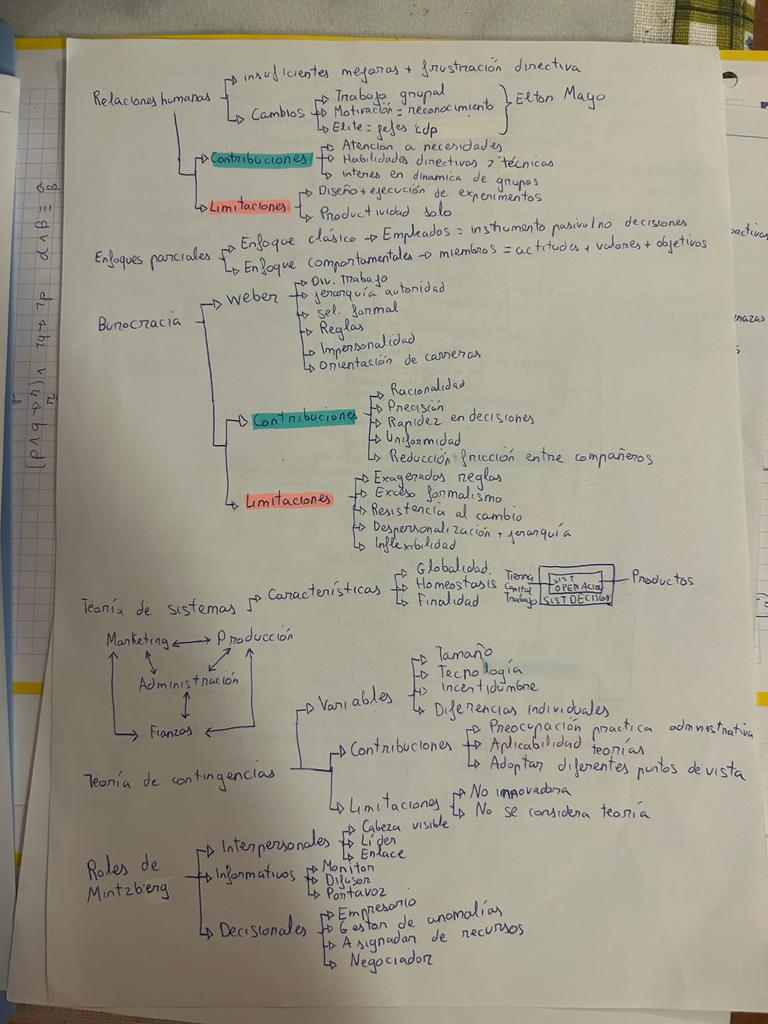 insuficientes mejoras + frustración directiva
Relaciones humanas
Cambios
Trabajo grupal
Motivación = reconocimiento
Elite = jefes cdp
Elton Mayo
Contribuciones
Atención a necesidades
Habilidades directivas > técnicas
interes en dinamica de grupos
Limitaciones
Diseño + ejecución de experimentos
Productividad solo
Enfoques parciales
Enfoque clásico → Empleados = instrumento pasivo/no decisiones
Enfoque comportamentales → miembros = actitudes + valores + objetivos
Burocracia
Weber
Div. Trabajo
jerarquía autoridad
sel. formal
Reglas
Impersonalidad
Orientación de carreras
Contribuciones
Racionalidad
Precisión
Rapidez en decisiones
Uniformidad
Reducción fricción entre compañeros
Limitaciones
Exagerados reglas
Exceso formalismo
Resistencia al cambio
Despersonalización + jerarquía
Inflexibilidad
Teoría de sistemas
Características
Globalidad
Homeostasis
Finalidad
Tierra
Capital
Trabajo
SIST
OPERACIO
SIST DECISION
Productos
Marketing ↔ Producción
Administración
Fianzas
Teoría de contingencias
Variables
Tamaño
Tecnología
incertidumbre
Diferencias individuales
Contribuciones
Preocupación practica administrativa
Aplicabilidad teorías
Adoptar diferentes puntos de vista
Limitaciones
No innovadora
No se considera teoría
Roles de
Mintzberg
Interpersonales
Cabeza visible
Líder
Enlace
Informativos
Monitor
Difusor
Portavoz
Decisionales
Empresario
Gestor de anomalías
Asignador de recursos
Negociador